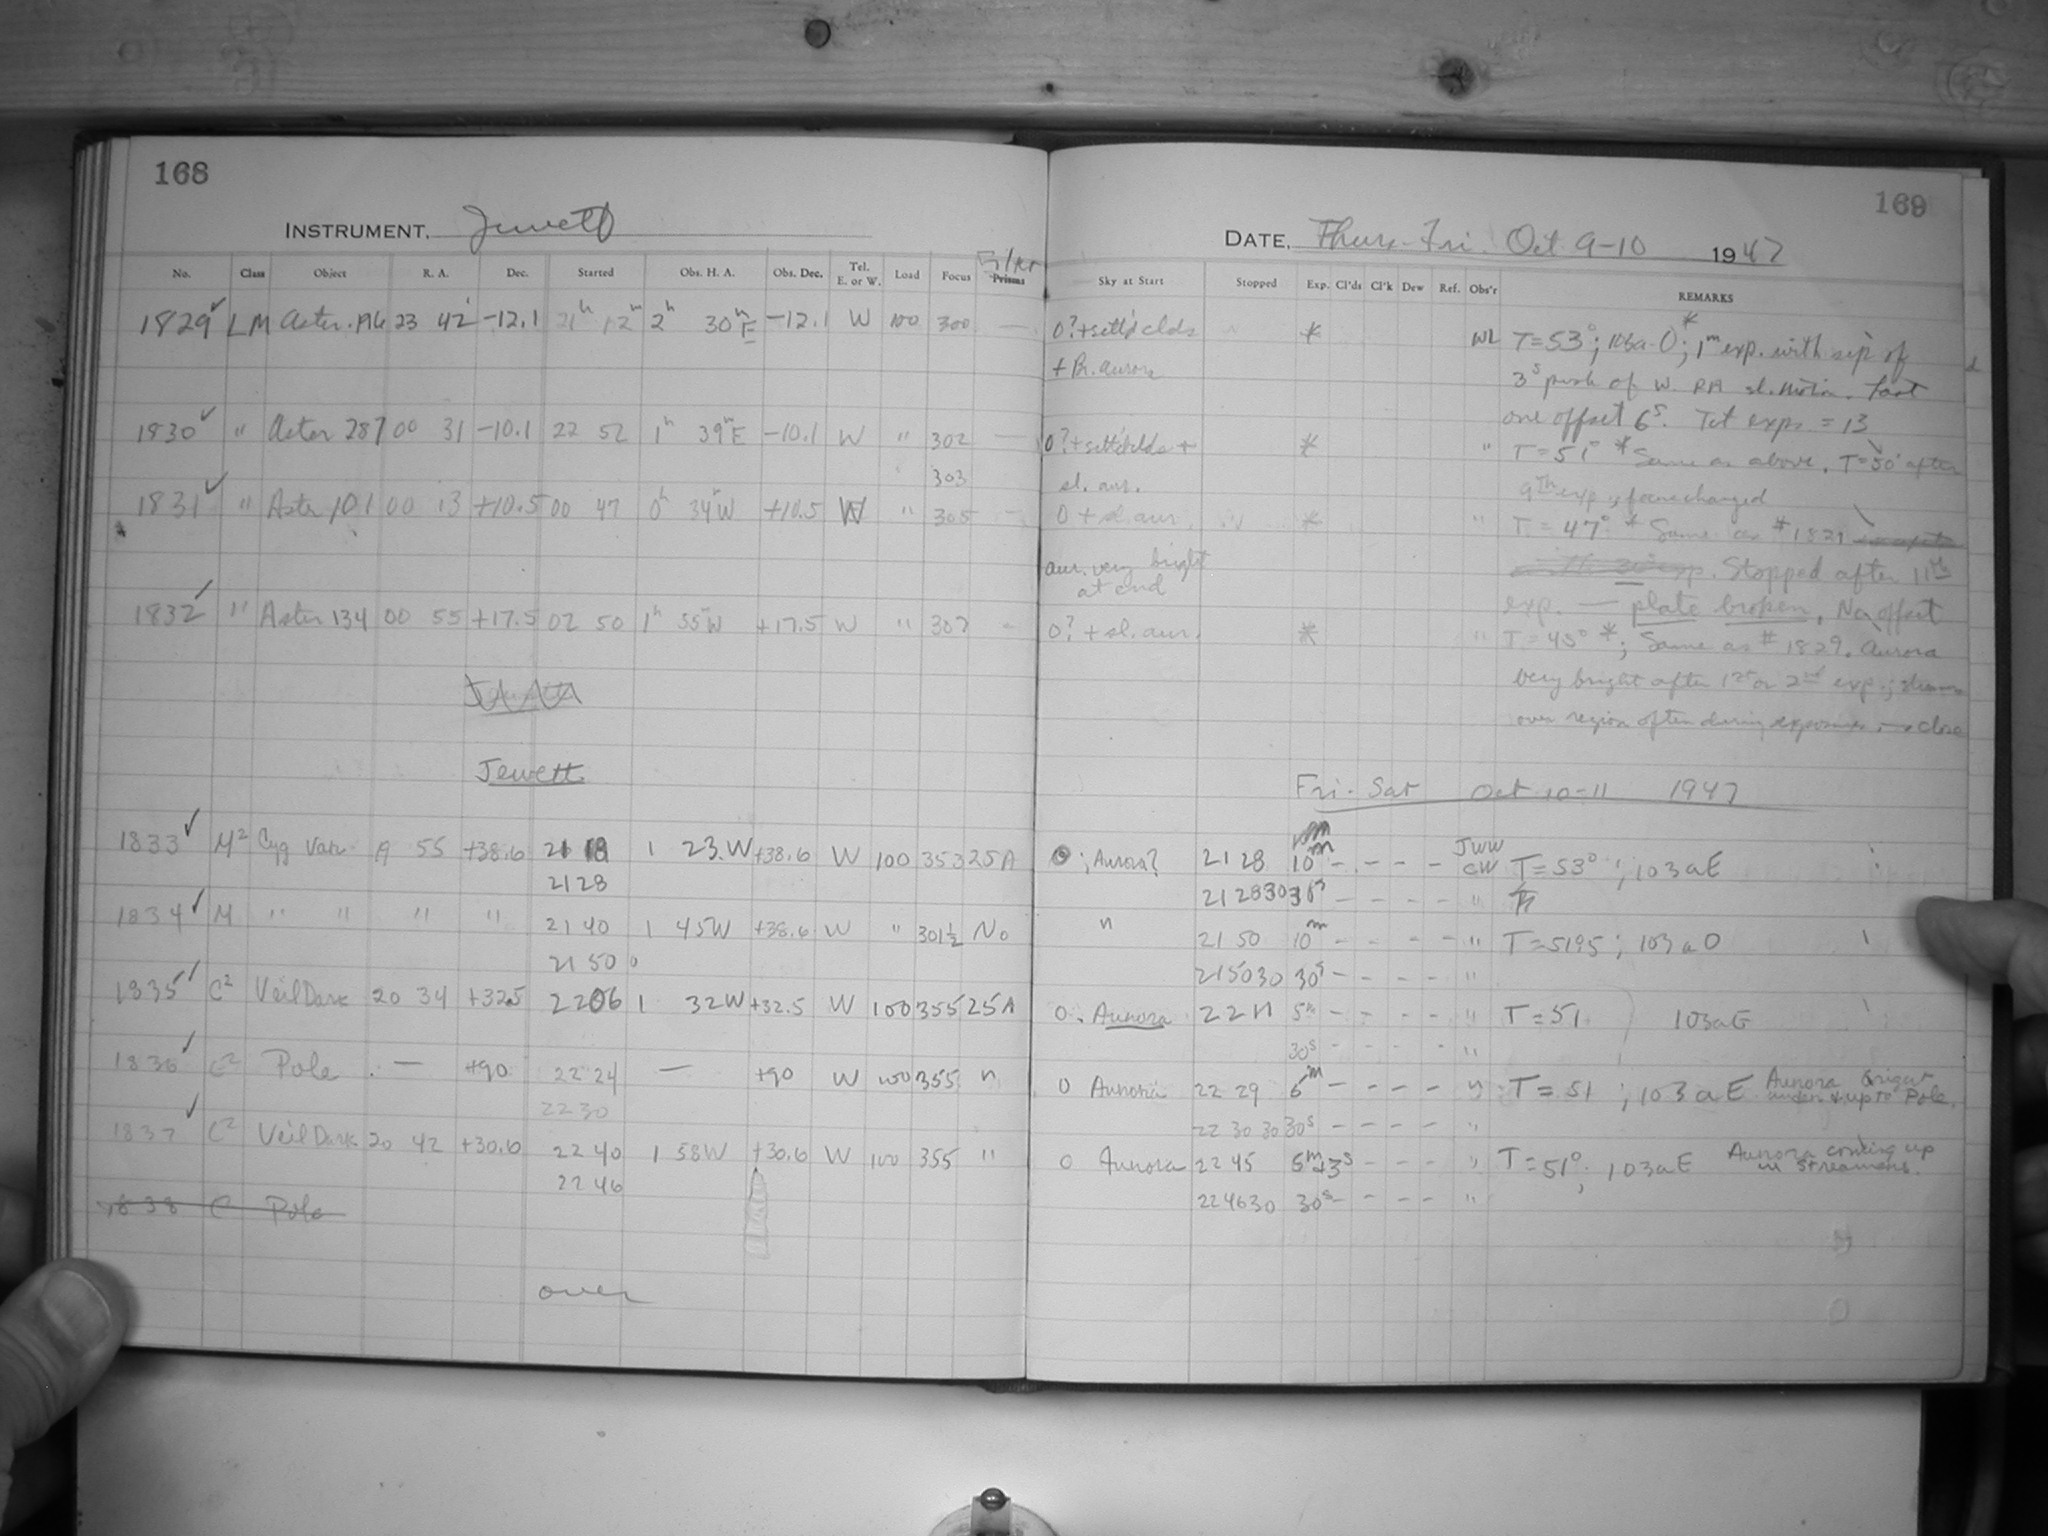 168
INSTRUMENT. Jewett
No. Class Object R. A. Dec. Started Obs. H. A. Obs. Dec. Tel. E. or W. Load Focus Filter Prisms
1829 ✓ LM Aster. 23 42 -12.1 21h 12m 2h 30m E -12.1 W 100 300 —
1830 ✓ " Aster 287 00 31 -10.1 22 52 1h 39m E -10.1 W " 302 —
303
1831 ✓ " Aster 101 00 13 +10.5 00 47 0h 34m W +10.5 W " 305 -
1832 ✓ " Aster 134 00 55 +17.5 02 50 1h 55m W +17.5 W " 307 -
Jewett
1833 ✓ M2 Cyg Var. 19 55 +38.6 21 18 1 23.W +38.6 W 100 353 25A
2128
1834 ✓ M " " " " 21 40 1 45W +38.6 W " 301½ No
21 50
1835 ✓ C2 Veil Dark 20 34 +32.5 2206 1 32W +32.5 W 100 355 25A
1836 ✓ C2 Pole — +90 22 24 — +90 W 100 355 "
22 30
1837 ✓ C2 Veil Dark 20 42 +30.6 22 40 1 58W +30.6 W 100 355 "
22 46
1838 C Pole
over
169
DATE, Thurs-Fri. Oct 9-10 1947
Sky at Start Stopped Exp. Cl'ds Cl'k Dew Ref. Obs'r REMARKS
0? + sctt'd clds * WL T=53°; 103a-O; 1m exp. with sep of
+ Br. aurora 3s push of W. RA sl. motion. Last
one offset 6s. Tot exps = 13
0? + sctt'd clds + * " T=51° * Same as above. T=50° after
sl. aur. 9th exp; focus changed
0 + sl. aur. * " T=47° * Same as #1829
aur. very bright Stopped after 11th
at end exp. — plate broken. No offset
0? + sl. aur. * " T=45° *; Same as #1829. Aurora
very bright after 1st or 2nd exp.;
over region often during exposures. close
Fri-Sat Oct 10-11 1947
0; Aurora? 21 28 10m - - - - JWW CW T=53°; 103aE
21 28 30 30s - - - - "
" 21 50 10m - - - - " T=51.5; 103aO
21 50 30 30s - - - - "
0. Aurora 22 11 5m - - - - " T=51 103aE
30s - - - - "
0 Aurora 22 29 5m - - - - " T=51; 103aE Aurora bright
under & up to Pole.
22 30 30 30s - - - - "
0 Aurora 22 45 5m+3s - - - " T=51°; 103aE Aurora coming up
in streamers.
22 46 30 30s - - - - "